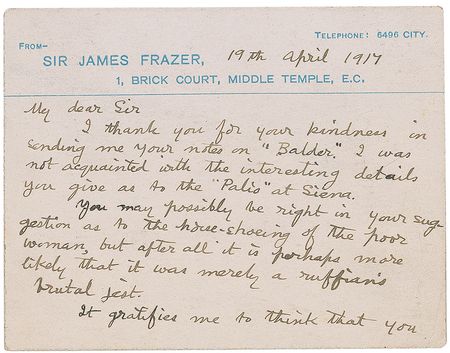 TELEPHONE: 6496 CITY.
FROM—
SIR JAMES FRAZER, 19th April 1917
1, BRICK COURT, MIDDLE TEMPLE, E.C.
My dear Sir
I thank you for your kindness in
sending me your notes on "Balder." I was
not acquainted with the interesting details
you give as to the "Palio" at Siena.
You may possibly be right in your sug
gestion as to the horse-shoeing of the poor
woman, but after all it is perhaps more
likely that it was merely a ruffian's
brutal jest.
It gratifies me to think that you